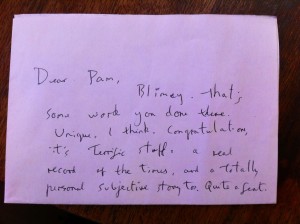 Dear Pam,
Blimey. That's
some work you done there.
Unique, I think. Congratulation,
it's Terrific stuff. a real
record of the times, and a totally
personal subjective story too. Quite a feat.